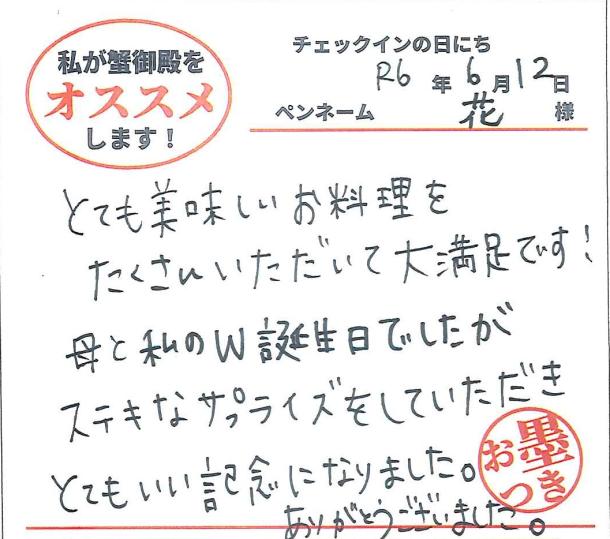 私が蟹御殿を
オススメ
します！
チェックインの日にち
R6 年 6 月 12 日
ペンネーム 花 様
とても美味しいお料理を
たくさんいただいて大満足です！
母と私のW誕生日でしたが
ステキなサプライズをしていただき
とてもいい記念になりました。
ありがとうございました。
お墨つき